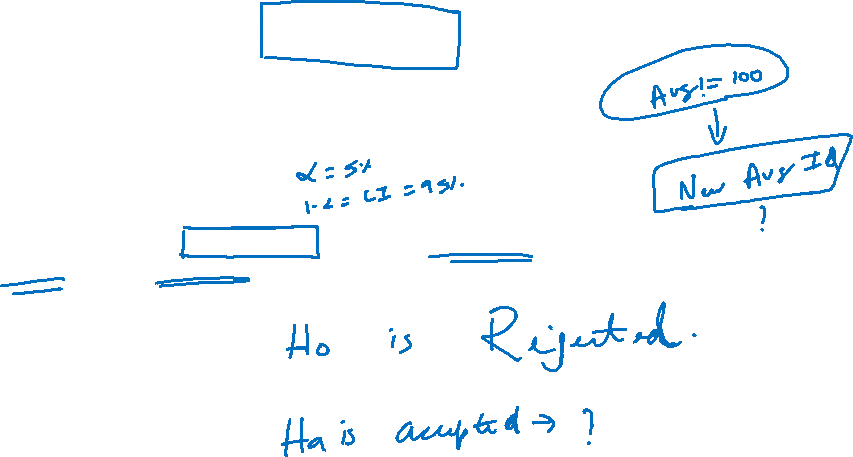 Avg != 100
New Avg IQ
?
α = 5%
1-α = CI = 95%.
Ho is Rejected.
Ha is accepted → ?